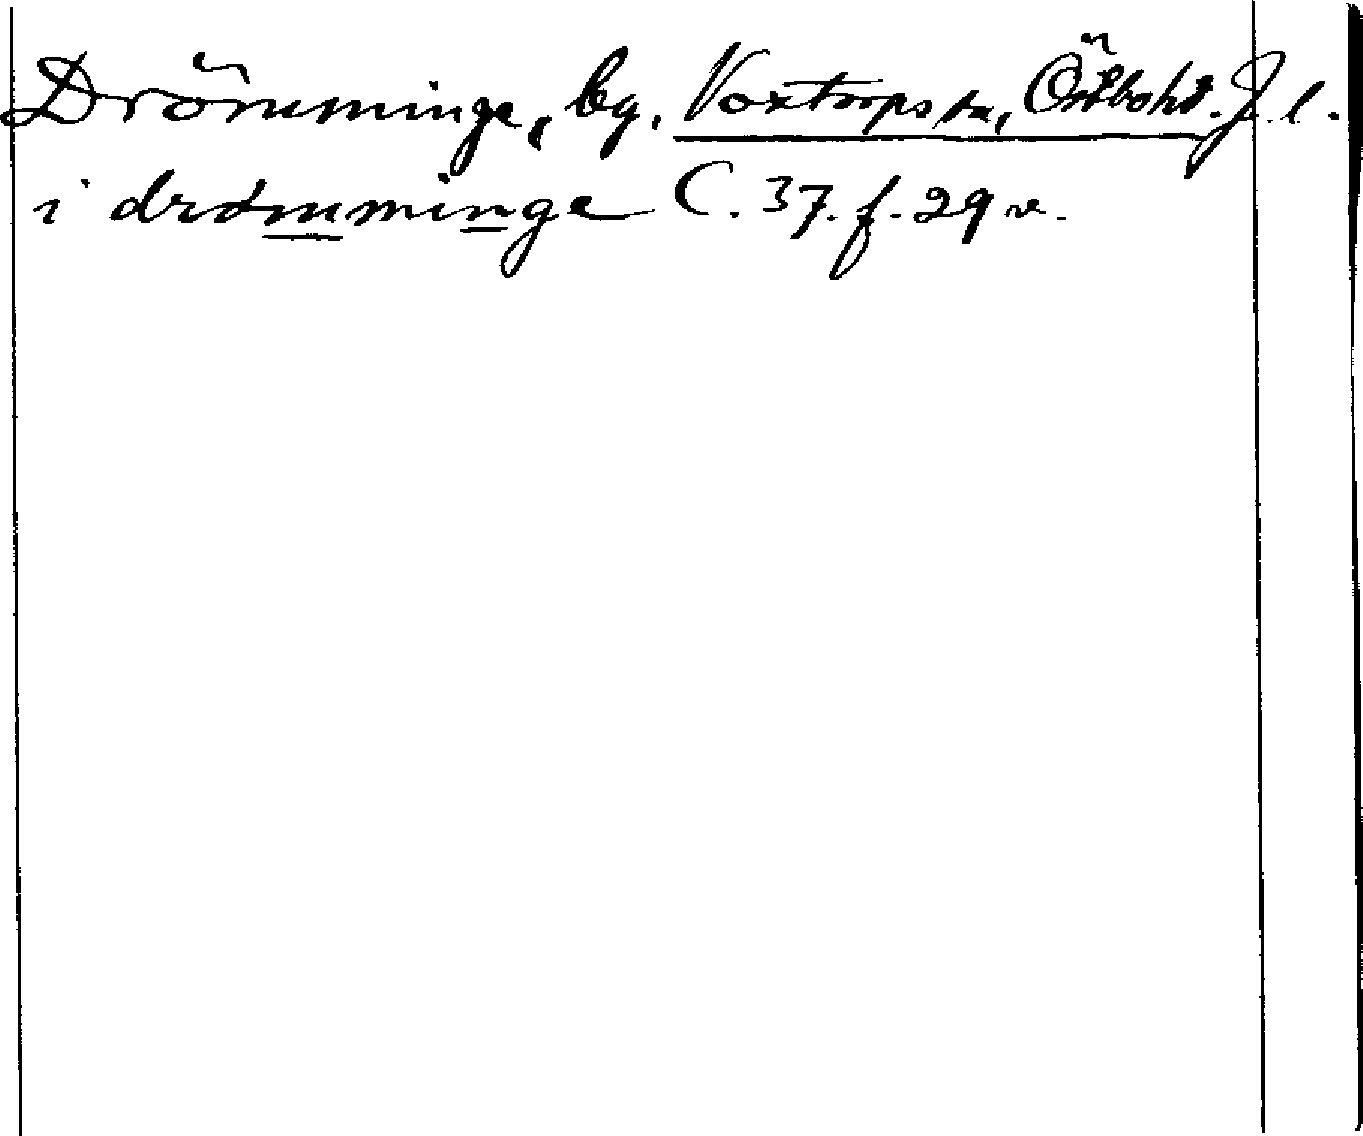 Drömminge, by, Voxtorps sn, Östbohd. J. l.
i drömminge C. 37. f. 29 v.